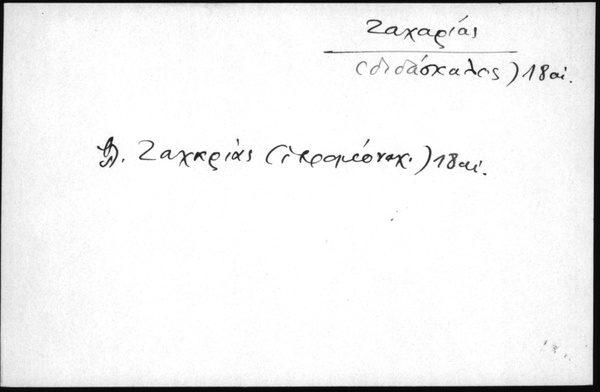 Ζαχαρίας
(διδάσκαλος) 18 αἰ.
βλ. Ζαχαρίας (ἱερομόναχ.) 18 αἰ.